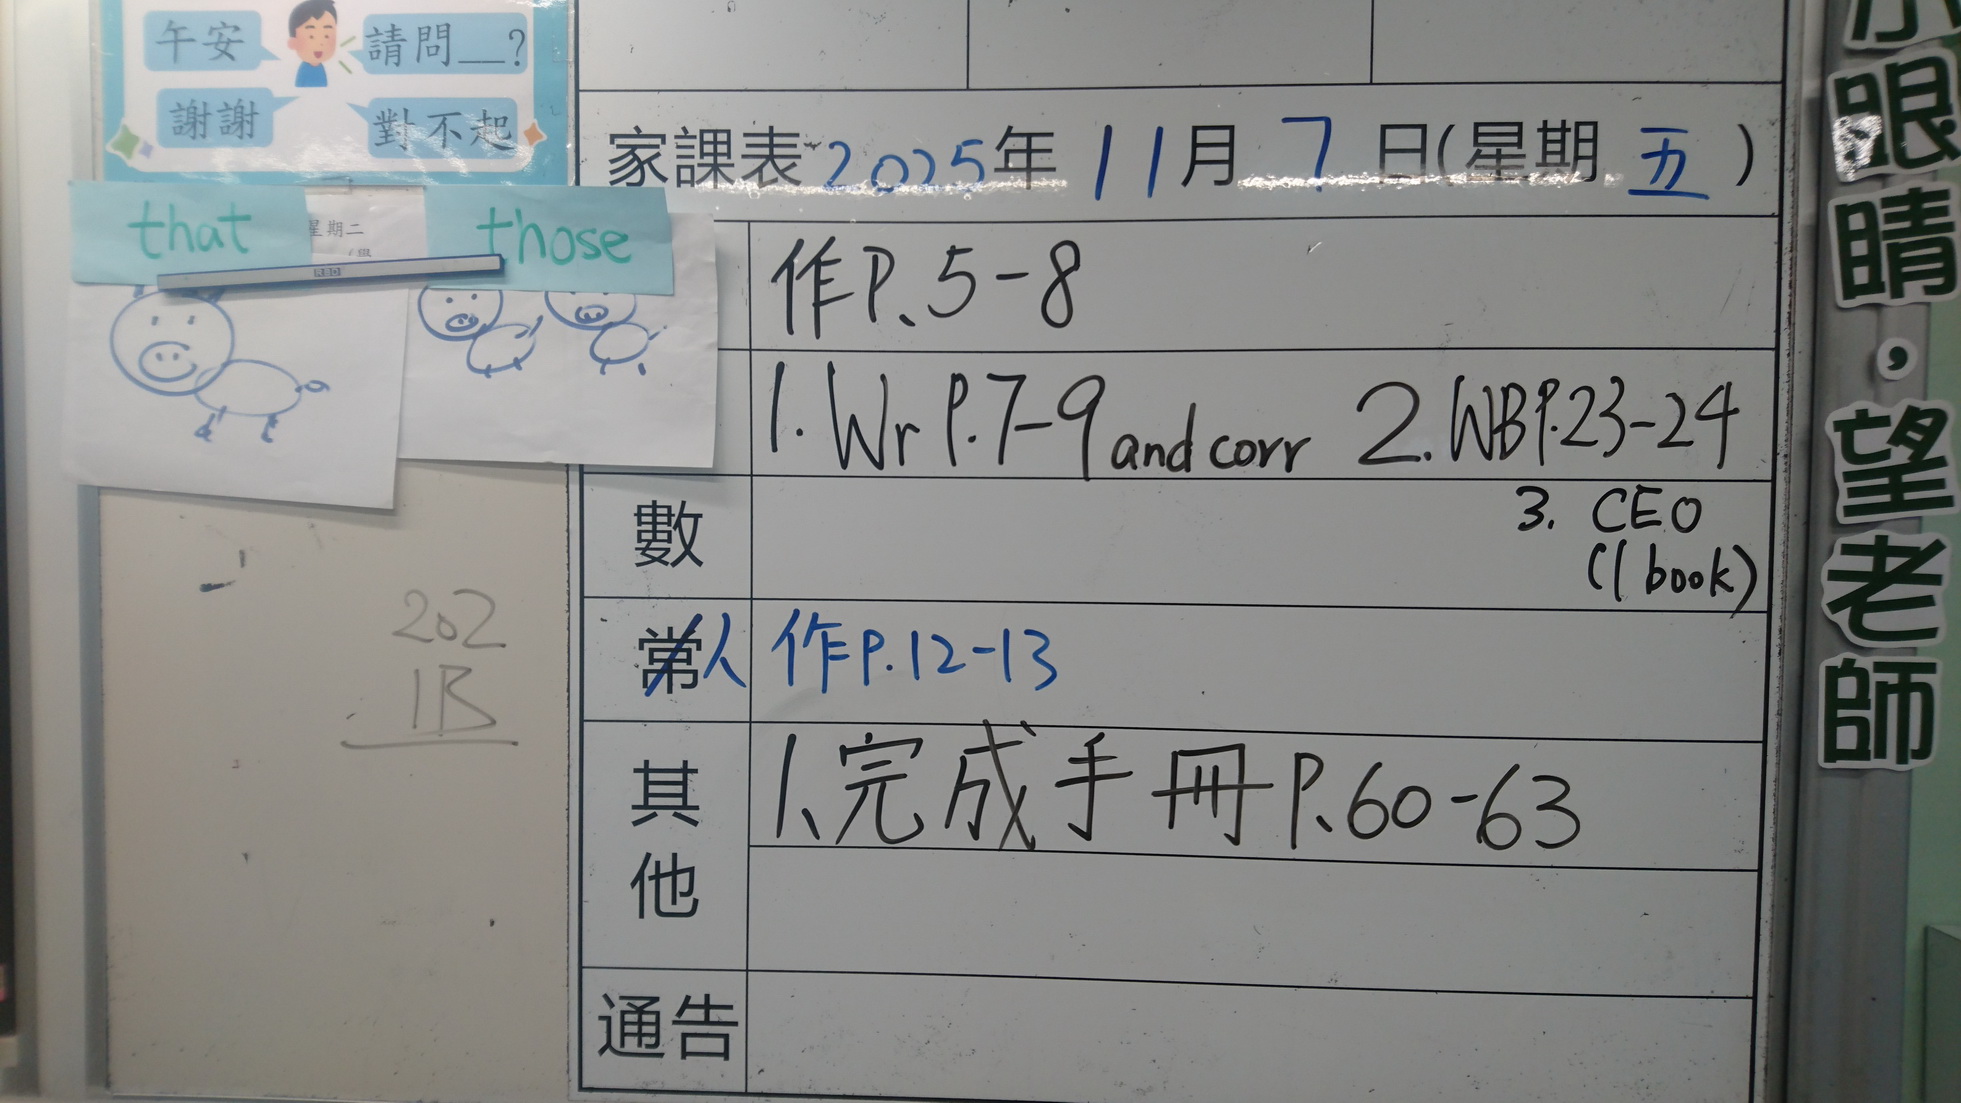 午安 請問__?
謝謝 對不起
家課表 2025年 11月 7日(星期 五)
that those
星期二
作P.5-8
1. Wr P.7-9 and corr 2. WB P.23-24
3. CEO
(1 book)
數
常人 作P.12-13
202
1B
其他
1.完成手冊P.60-63
通告
小眼睛,望老師